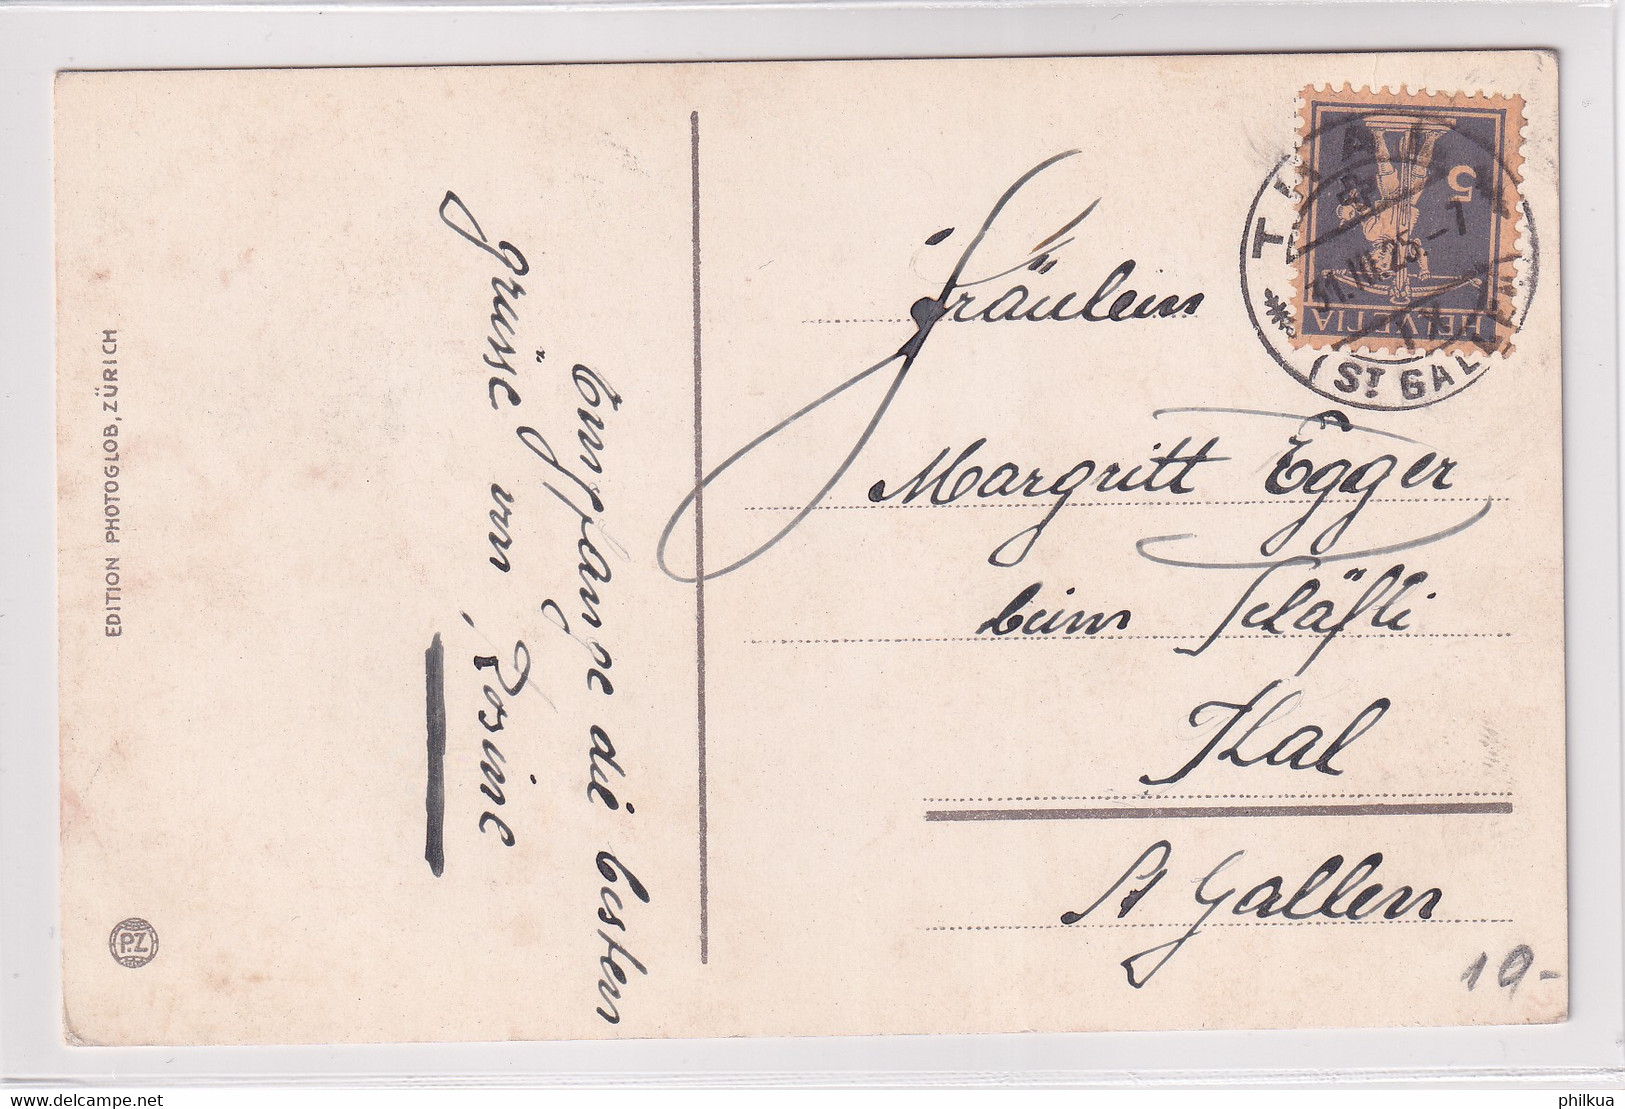 EDITION PHOTOGLOB, ZÜRICH
P.Z
Empfange die besten
grüsse von
Rosine
Fräulein
Margritt Egger
beim Schäfli
Thal
St Gallen
HELVETIA
5
THAL
31.III.25.-7
(ST GALLEN)
19-
www.delcampe.net
philkua